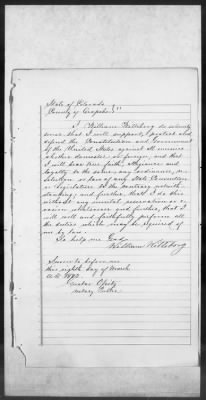 State of Colorado
County of Arapahoe } ss
I William Hillsburg do solemnly
swear that I will support, protect and
defend the Constitution and Government
of the United States against all enemies
whether domestic or foreign, and that
I will bear true faith, allegiance and
loyalty to the same, any ordinance, re-
solution or law of any State Convention
or Legislature to the contrary notwith-
standing, and further, that I do this
without any mental reservation or e-
vasion whatsoever and further, that I
will well and faithfully perform all
the duties which may be required of
me by law.
So help me God.
William
Sworn to before me
this eighth day of March
A.D. 1892.
Notary Public